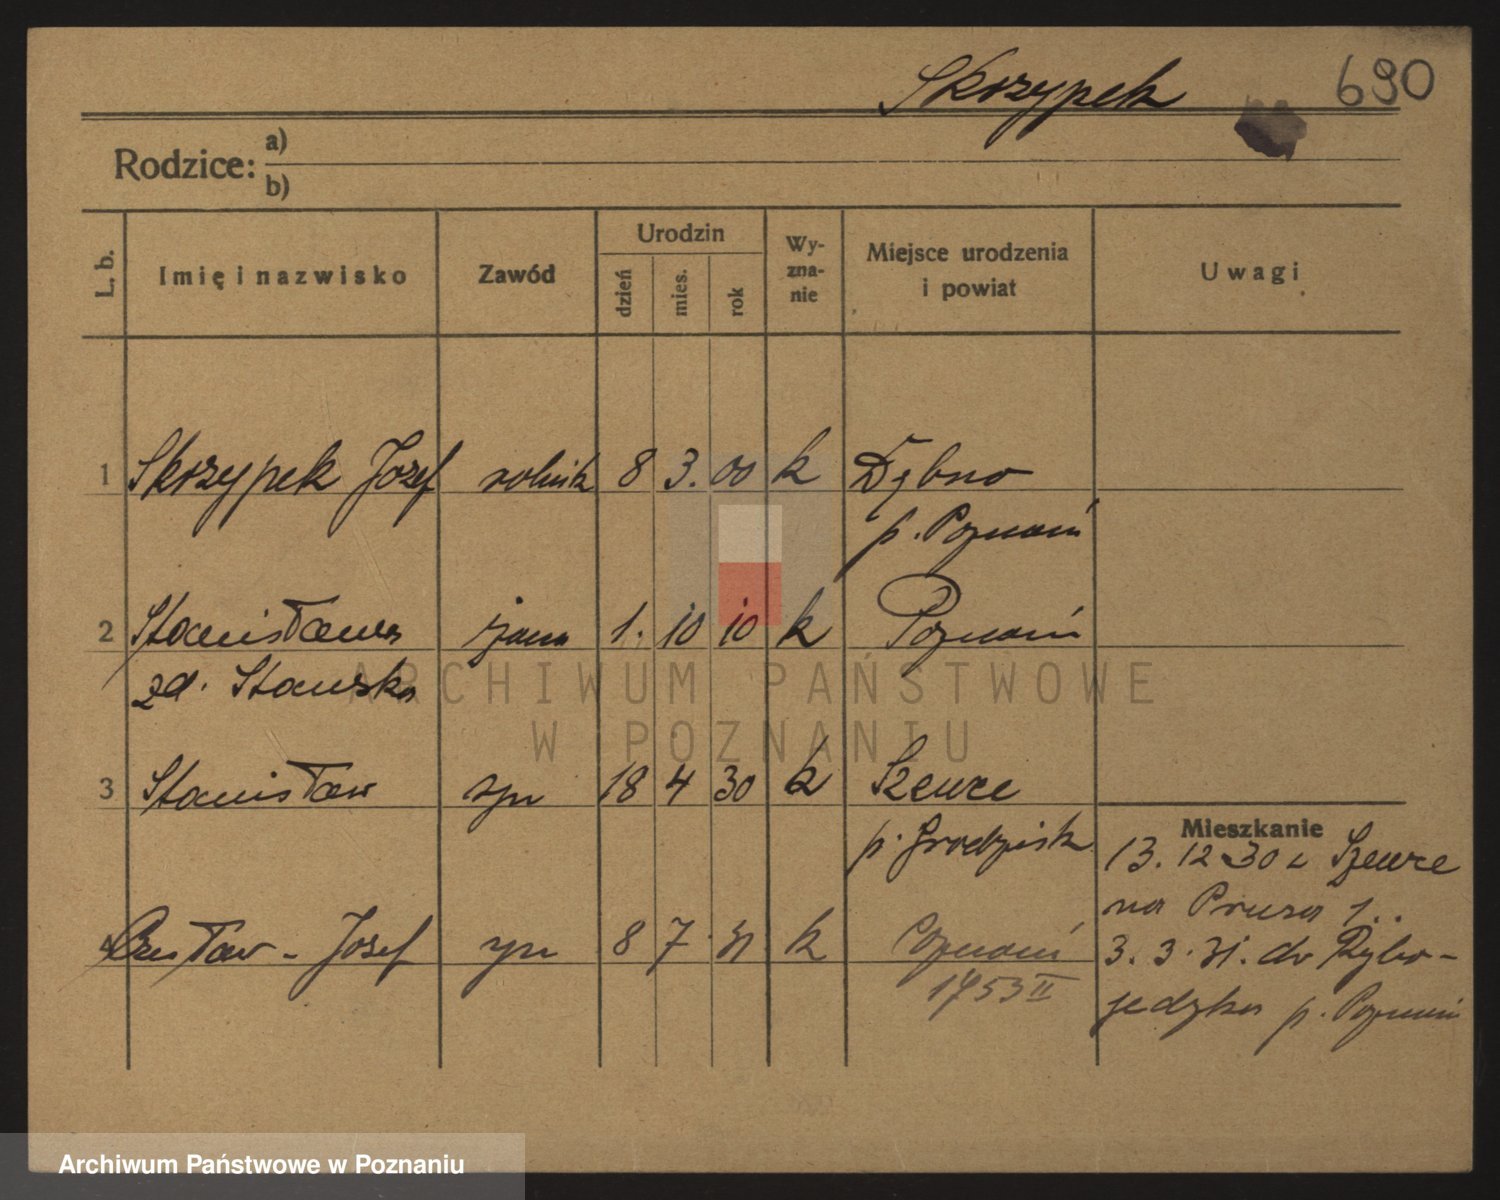 Skrzypek 690
Rodzice: a)
b)
L. b. Imię i nazwisko Zawód Urodzin dzień mies. rok Wy-zna-nie Miejsce urodzenia i powiat Uwagi
1 Skrzypek Józef rolnik 8 3. 00 k Dębno
p. Poznań
2 Stanisława żona 1. 10 10 k Poznań
zd. Stawska
ARCHIWUM PAŃSTWOWE
W POZNANIU
3 Stanisław syn 18 4 30 k Szewce
p. Grodzisk
Mieszkanie
13. 12 30 z Szewce
na Prusa 1..
4 Czesław - Józef syn 8 7 31 k Poznań
1753 II
3. 3. 31. do Rybo-
jedzka p. Poznań
Archiwum Państwowe w Poznaniu